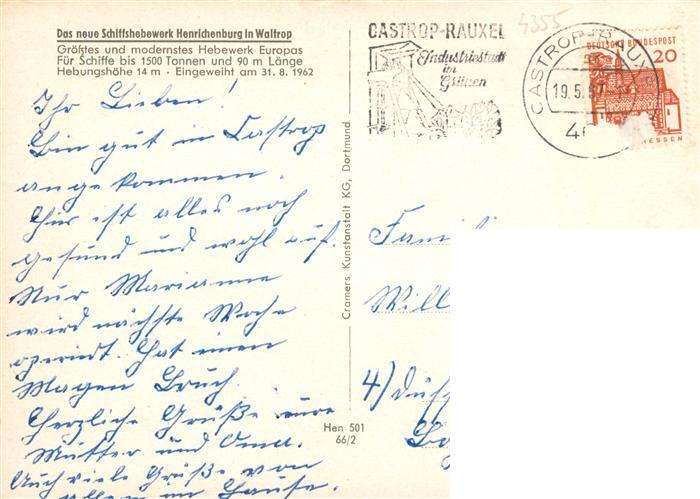 Das neue Schiffshebewerk Henrichenburg in Waltrop
Größtes und modernstes Hebewerk Europas
Für Schiffe bis 1500 Tonnen und 90 m Länge
Hebungshöhe 14 m - Eingeweiht am 31. 8. 1962
Ihr Lieben!
Bin gut in Castrop
angekommen.
Hier ist alles noch
gesund und wohl auf.
Nur Marianne
wird nächste Woche
operiert. Hat einen
Magen Bruch.
Herzliche Grüße eure
Mutter und Oma.
Auch viele Grüße von
allen im Hause.
Cramers Kunstanstalt KG, Dortmund
Hen 501
66/2
4355
CASTROP-RAUXEL
Industriestadt
im
Grünen
CASTROP-RAUXEL
19.5.67
DEUTSCHE BUNDESPOST
20
HESSEN
Famil
Will
4) Düss